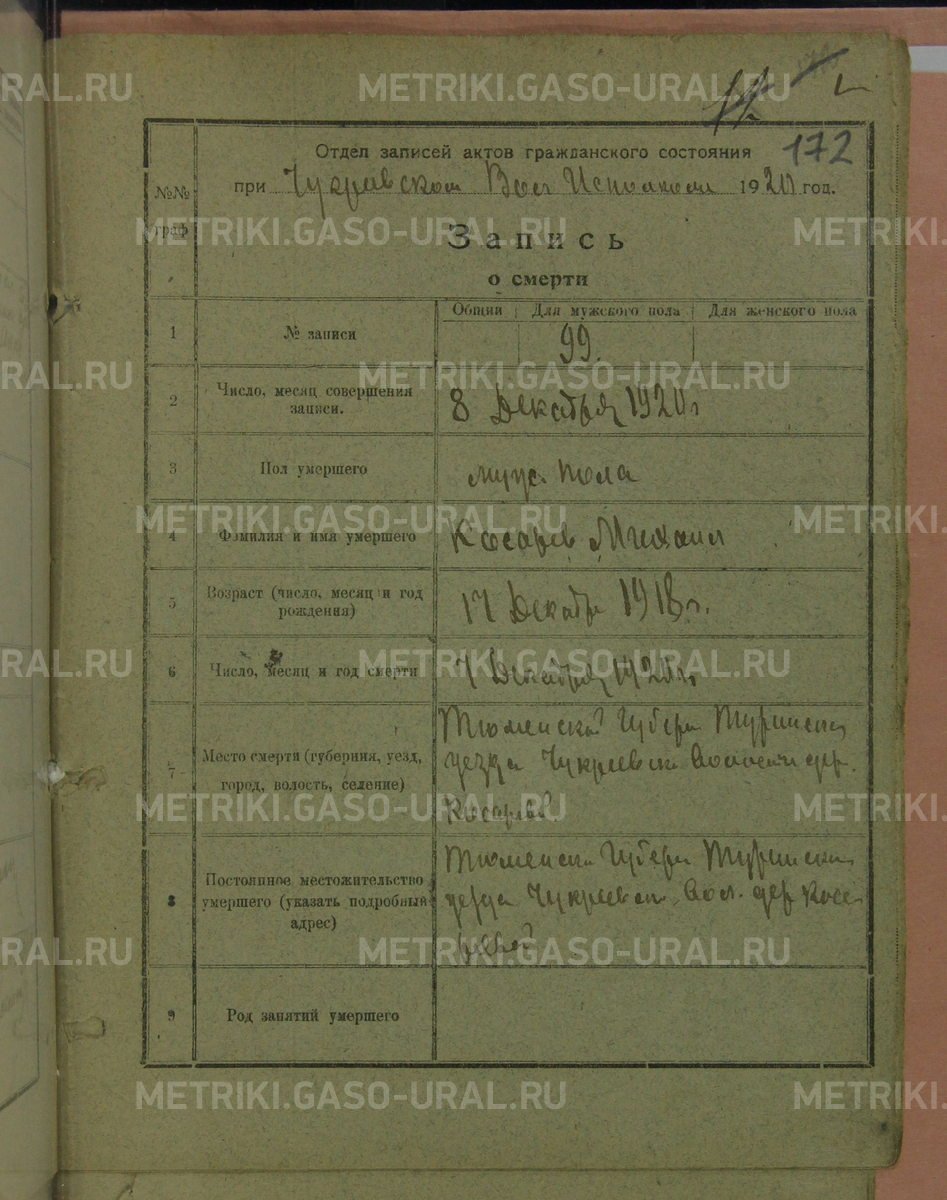 172
Отдел записей актов гражданского состояния
при Чукреевском Вол Исполкоме 1920 год.
№№ граф
Запись
о смерти
Общий Для мужского пола Для женского пола
1 № записи 99.
2 Число, месяц совершения записи. 8 Декабря 1920 г
3 Пол умершего муж. пола
4 Фамилия и имя умершего Косарев Михаил
5 Возраст (число, месяц и год рождения) 17 Декабр 1918 г.
6 Число, месяц и год смерти 7 Декабря 1920 г.
7 Место смерти (губерния, уезд, город, волость, селение) Тюменской Губерн Туринского
уезда Чукреевск Волости дер.
Косарева
8 Постоянное местожительство умершего (указать подробный адрес) Тюменска Губерн Туринска
уезда Чукреевск Вол. дер Коса-
ревой
9 Род занятий умершего
METRIKI.GASO-URAL.RU